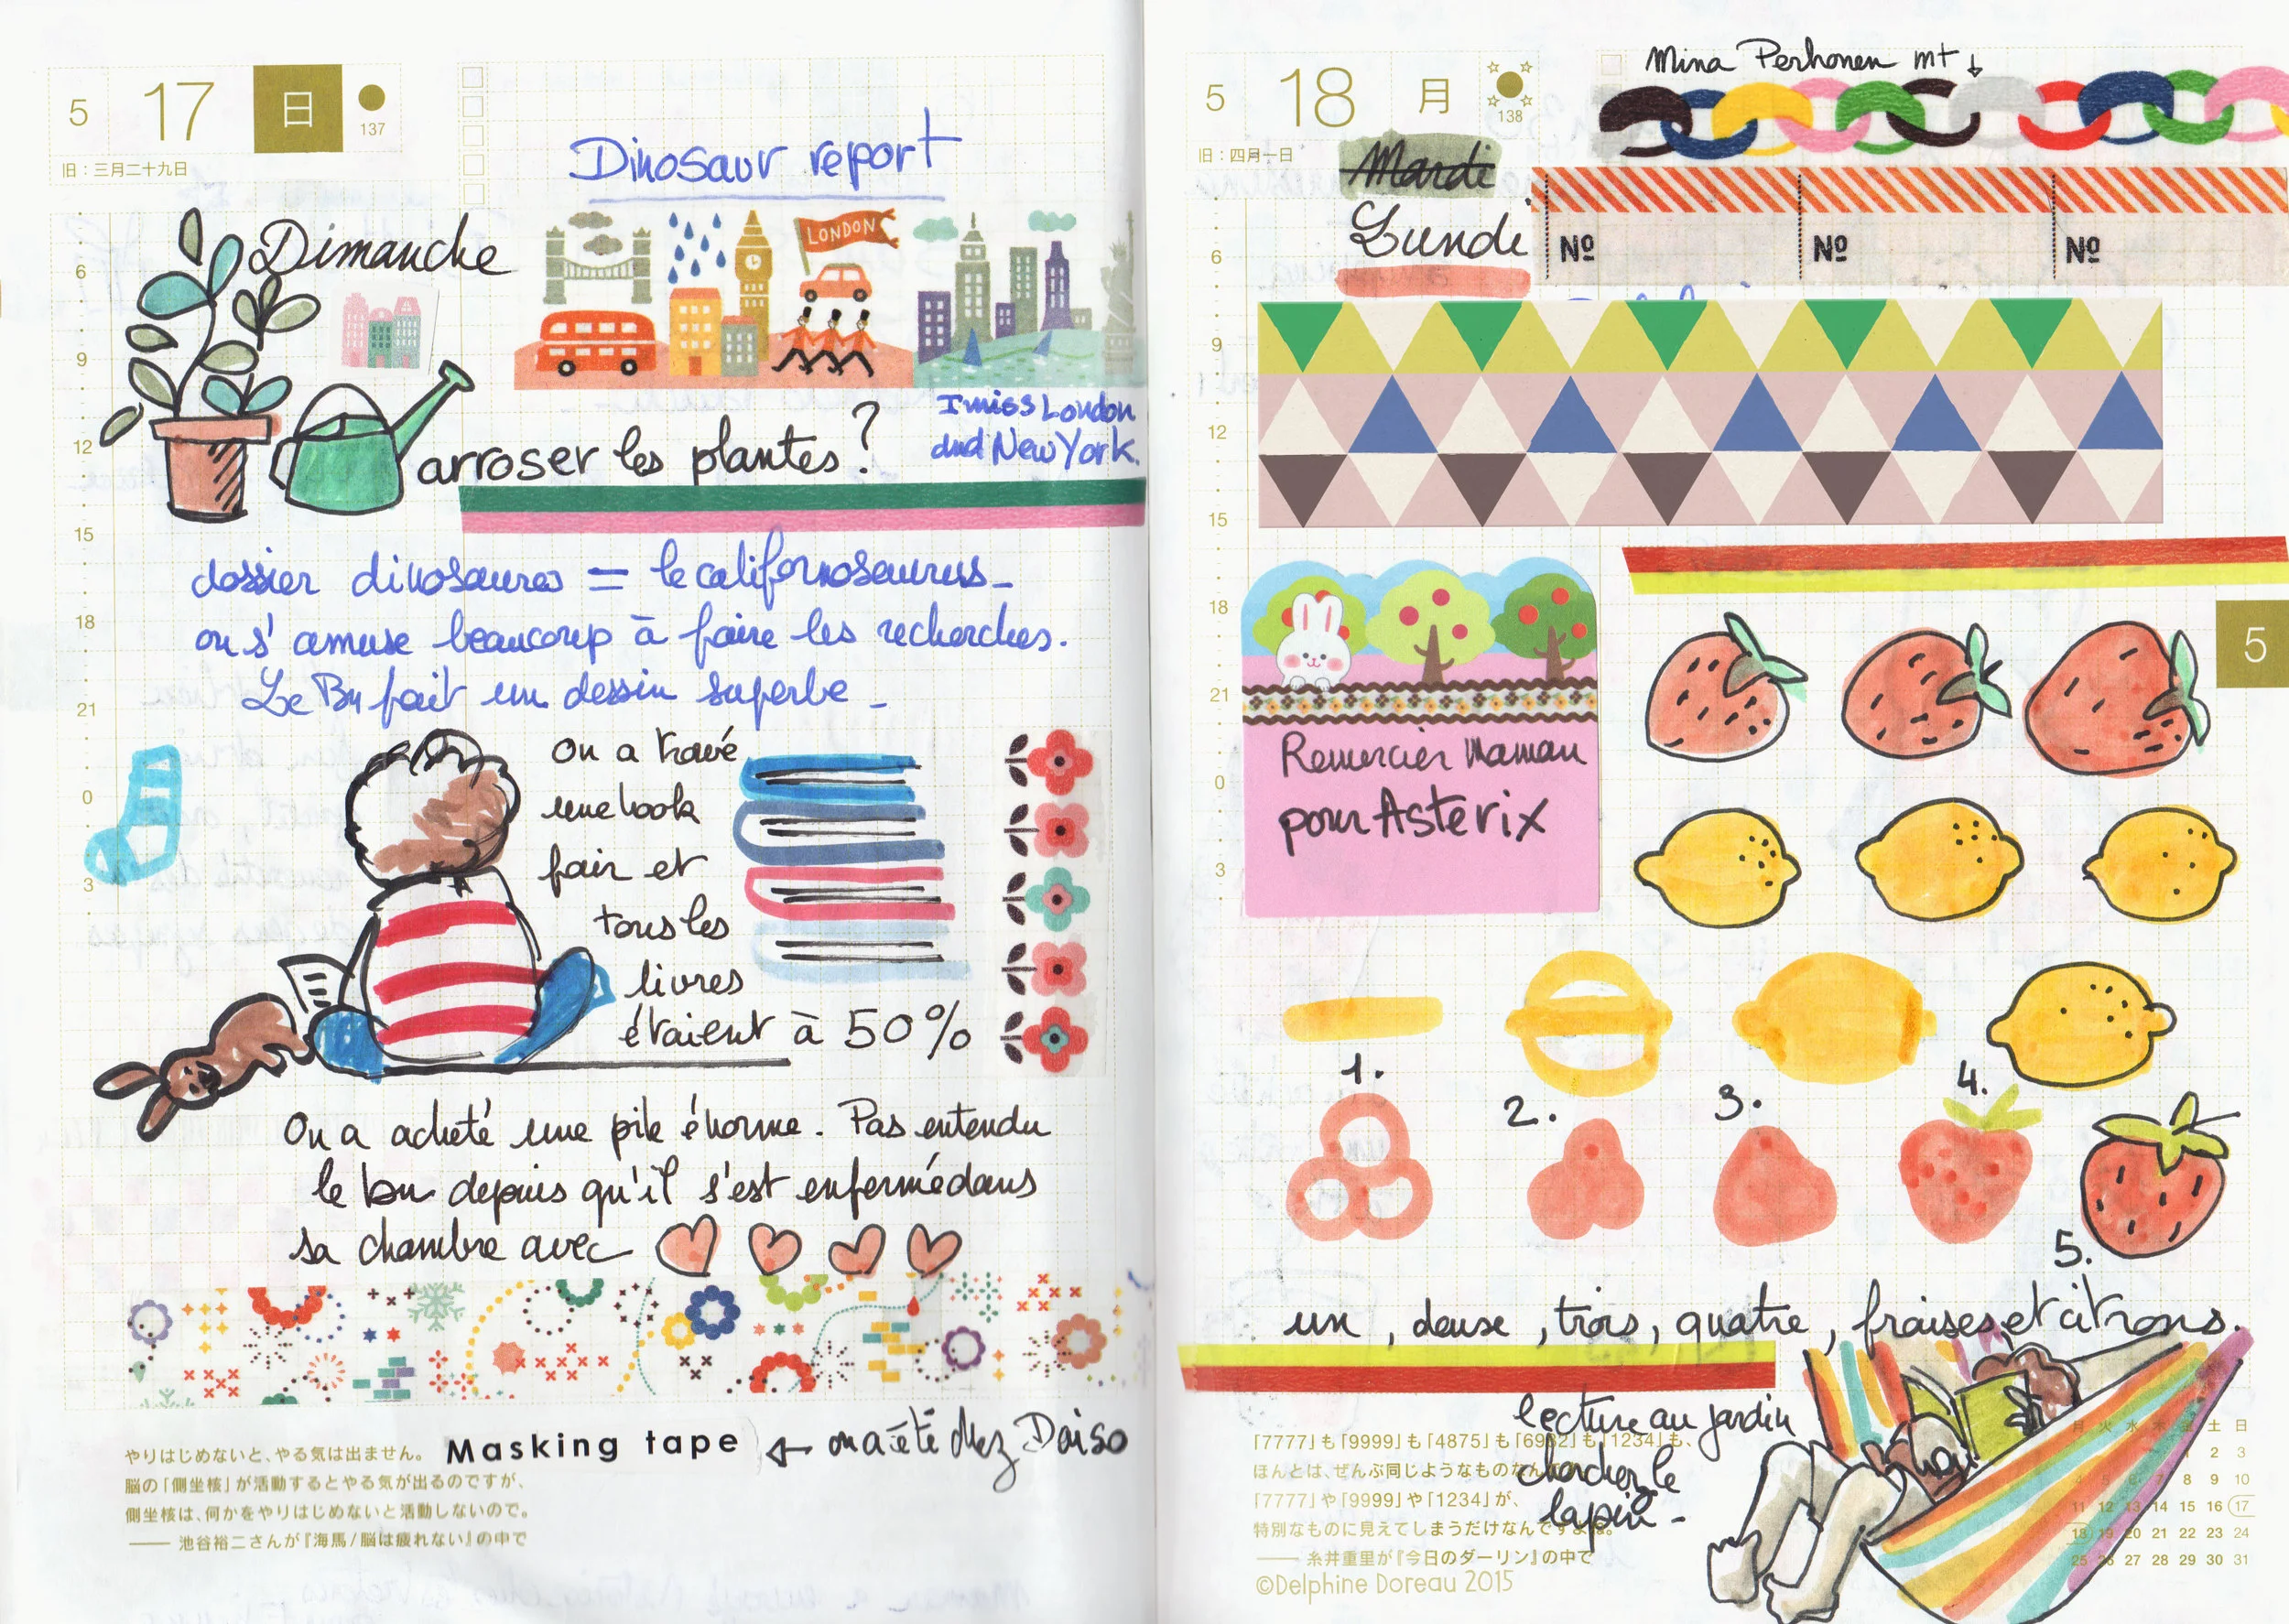 5 17 日
137
旧：三月二十九日
Dinosaur report
Dimanche
LONDON
I miss London
and New York.
arroser les plantes?
6
9
12
15
18
21
0
3
dossier dinosaures = le californosaurus_
on s'amuse beaucoup à faire les recherches.
Le Bu fait un dessin superbe_
On a trouvé
une book
fair et
tous les
livres
étaient à 50%
On a acheté une pile énorme. Pas entendu
le bu depuis qu'il s'est enfermé dans
sa chambre avec
Masking tape ← on a été chez Daiso
やりはじめないと、やる気は出ません。
脳の「側坐核」が活動するとやる気が出るのですが、
側坐核は、何かをやりはじめないと活動しないので。
—— 池谷裕二さんが『海馬/脳は疲れない』の中で
5 18 月
138
旧：四月一日
Mina Perhonen mt ↓
Mardi
Lundi
Nº Nº Nº
6
9
12
15
18
21
0
3
5
Remercier Maman
pour Astérix
1.
2.
3.
4.
5.
un, deuse, trois, quatre, fraises et citrons.
lecture au jardin
chercher le
lapin -
「7777」も「9999」も「4875」も「6932」も「1234」も、
ほんとは、ぜんぶ同じようなものなん
「7777」や「9999」や「1234」が、
特別なものに見えてしまうだけなんですよね。
—— 糸井重里が『今日のダーリン』の中で
©Delphine Doreau 2015
月 火 水 木 土 日
2 3
4 5 6 7 8 9 10
11 12 13 14 15 16 17
18 19 20 21 22 23 24
25 26 27 28 29 30 31